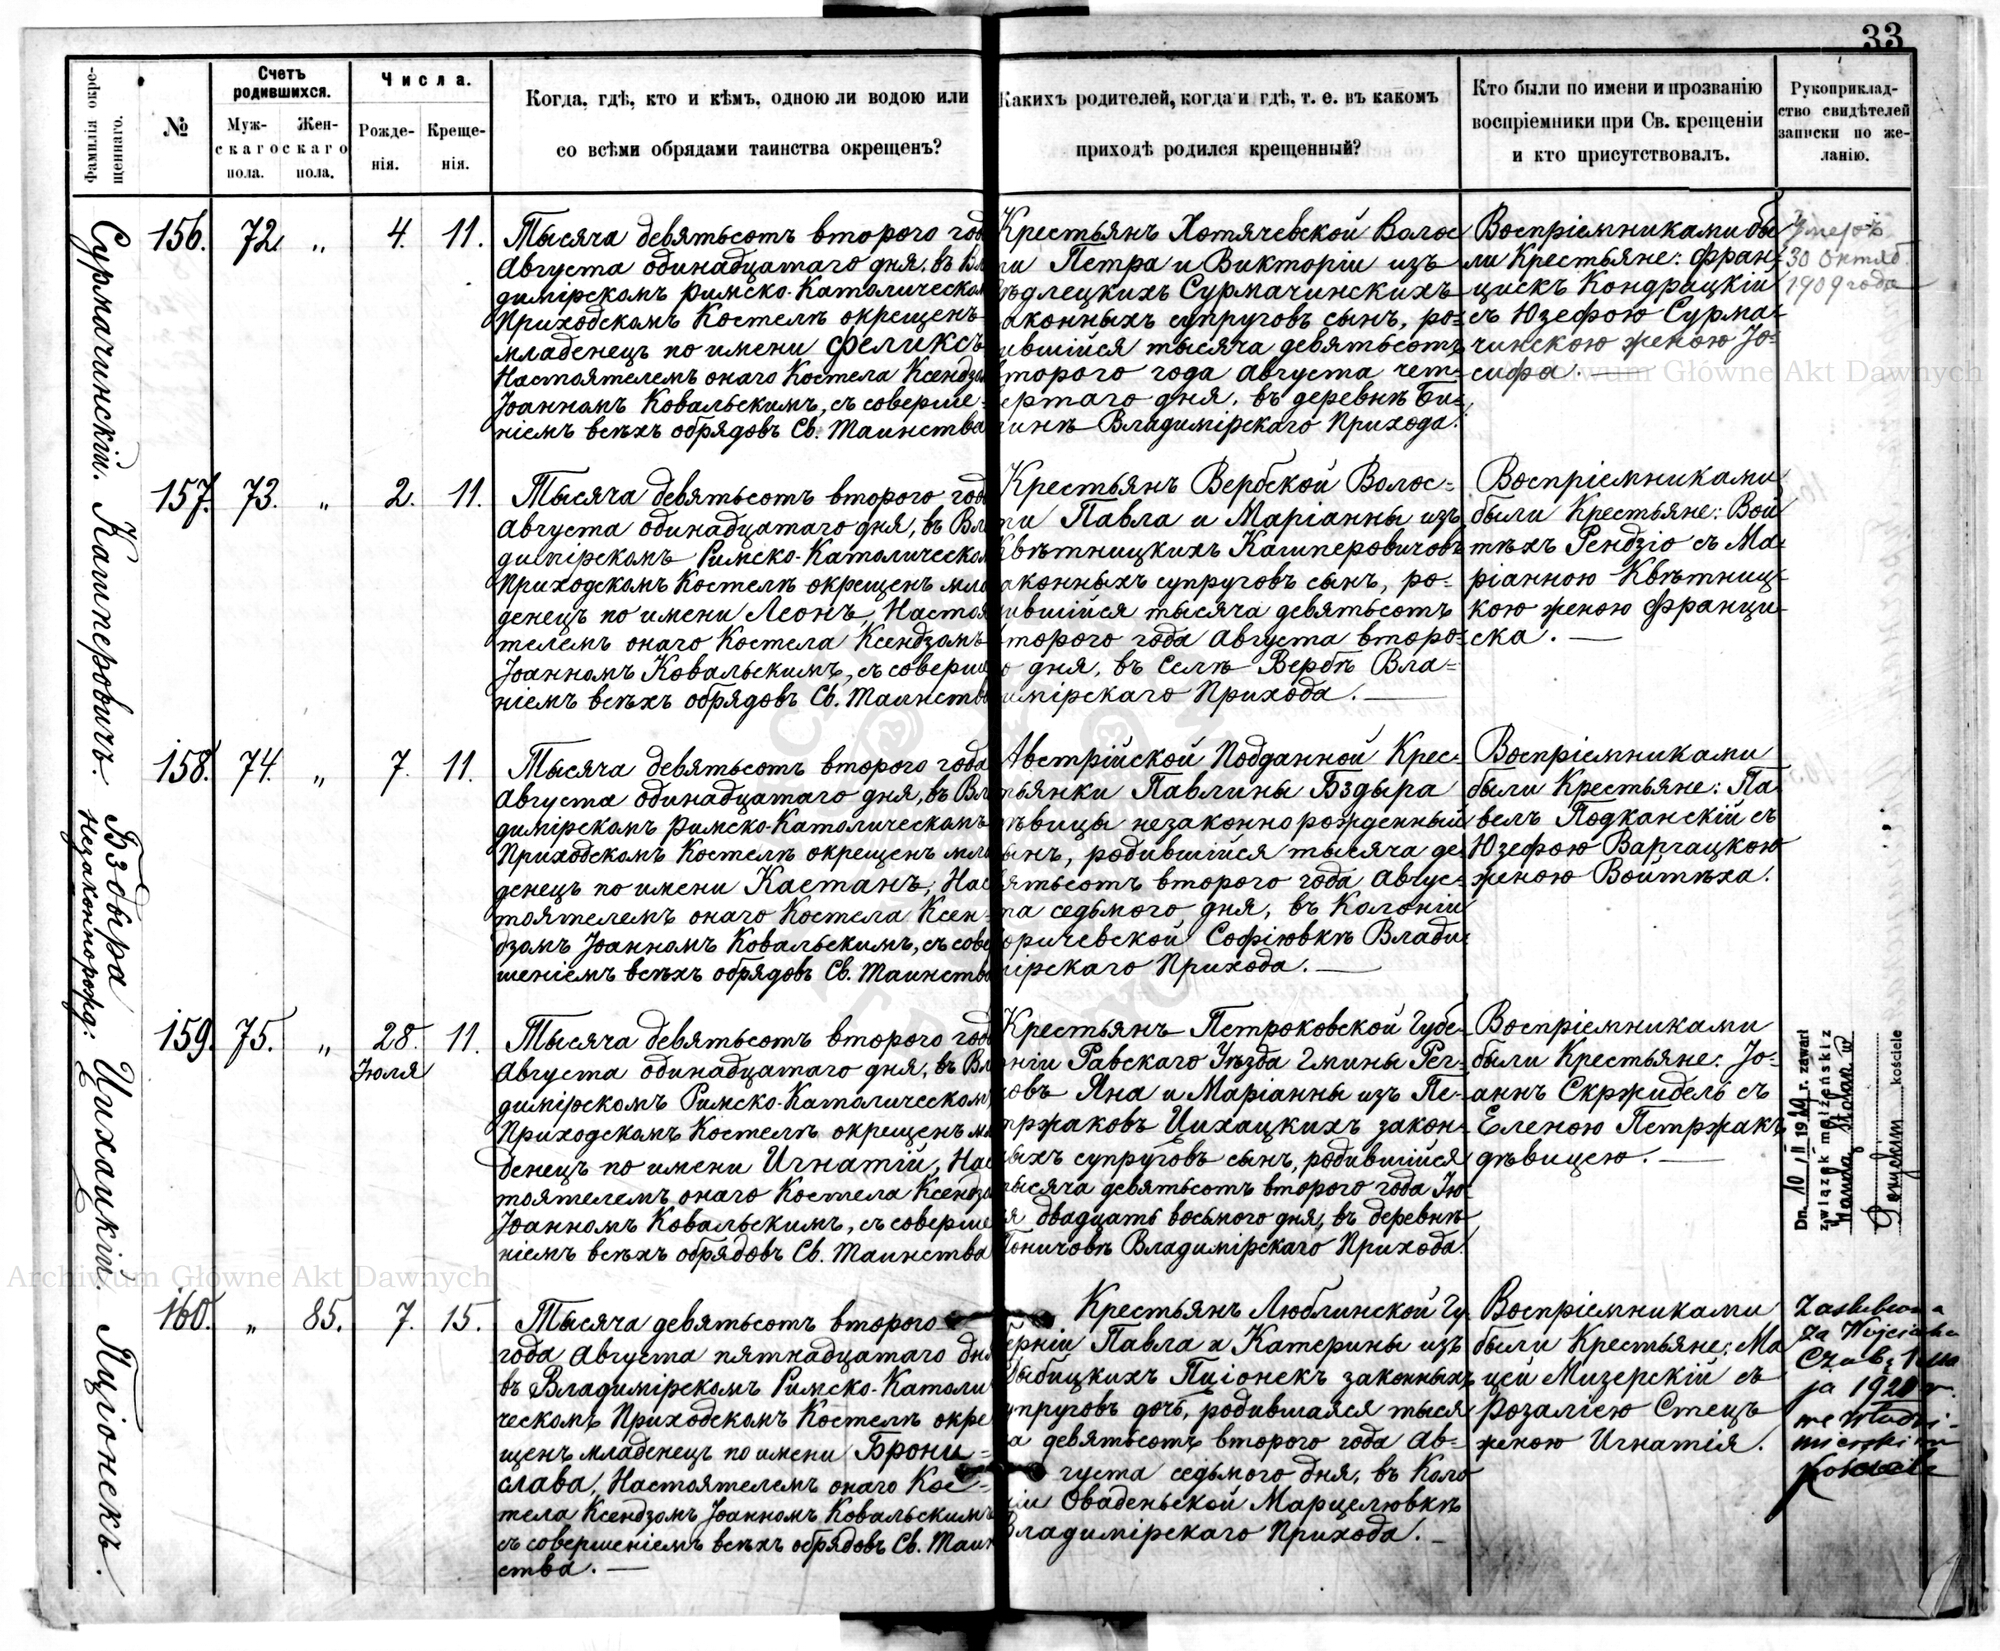 33
Фамилія окре-
щеннаго.
№
Счетъ
родившихся.
Муж-
скаго
пола.
Жен-
скаго
пола.
Числа.
Рожде-
нія.
Креще-
нія.
Когда, гдѣ, кто и кѣмъ, одною ли водою или
со всѣми обрядами таинства окрещенъ?
Какихъ родителей, когда и гдѣ, т. е. въ какомъ
приходѣ родился крещенный?
Кто были по имени и прозванію
воспріемники при Св. крещеніи
и кто присутствовалъ.
Рукоприклад-
ство свидѣтелей
записки по же-
ланію.
Сурмачинскій.
156. 72. „ 4. 11.
Тысяча девятьсотъ второго год
Августа одинадцатаго дня, въ Вла
димірскомъ Римско-Католическом
Приходскомъ Костелѣ окрещенъ
младенецъ по имени Феликсъ
Настоятелемъ онаго Костела Ксендзом
Іоанномъ Ковальскимъ, съ соверше-
ніемъ всѣхъ обрядовъ Св. Таинства
Крестьянъ Хотячевской Волос
ти Петра и Викторіи изъ
длецкихъ Сурмачинскихъ
аконныхъ супруговъ сынъ, ро-
ившійся тысяча девятьсотъ
торого года Августа чет-
ертаго дня, въ деревнѣ Би-
инѣ Владимірскаго Прихода.
Воспріемниками бы
ли Крестьяне: Фран-
цискъ Кондрацкій
съ Юзефою Сурма-
чинскою женою Іо-
сифа.
Умеръ
30 Октяб.
1909 года
Катперовичъ.
157. 73. „ 2. 11.
Тысяча девятьсотъ второго год
Августа одинадцатаго дня, въ Вл
димірскомъ Римско-Католическом
Приходскомъ Костелѣ окрещенъ мла
денецъ по имени Леонъ, Настоя
телемъ онаго Костела Ксендзомъ
Іоанномъ Ковальскимъ, съ соверше
ніемъ всѣхъ обрядовъ Св. Таинства
Крестьянъ Вербской Волос-
ти Павла и Маріанны изъ
Квѣтницкихъ Кашперовичовъ
аконныхъ супруговъ сынъ, ро-
ившійся тысяча девятьсотъ
второго года Августа второ-
о дня, въ Селѣ Вербѣ Вла-
имірскаго Прихода.
Воспріемниками
были Крестьяне: Вой
тѣхъ Рендзіо съ Ма-
ріанною Квѣтниц-
кою женою Франци-
ска.
Бздыра
незаконнорожд:
158. 74. „ 7. 11.
Тысяча девятьсотъ второго года
Августа одинадцатаго дня, въ Вла
димірскомъ Римско-Католическомъ
Приходскомъ Костелѣ окрещенъ мла
денецъ по имени Каетанъ, Нас
тоятелемъ онаго Костела Ксен-
дзомъ Іоанномъ Ковальскимъ, съ сове
шеніемъ всѣхъ обрядовъ Св. Таинства
Австрійской Подданной Крес-
тьянки Павлины Бздыра
ѣвицы незаконнорожденный
ынъ, родившійся тысяча де-
вятьсотъ второго года Авгус-
та седьмого дня, въ Колоніи
оричевской Софіювкѣ Влади-
мірскаго Прихода.
Воспріемниками
были Крестьяне: Па-
велъ Подканскій съ
Юзефою Варгацкою
женою Войтѣха.
Цихацкій.
159. 75. „ 28. 11.
Іюля
Тысяча девятьсотъ второго год
Августа одинадцатаго дня, въ Вл
димірскомъ Римско-Католическом
Приходскомъ Костелѣ окрещенъ мл
денецъ по имени Игнатій, Нас
тоятелемъ онаго Костела Ксендзо
Іоанномъ Ковальскимъ, съ соверше
ніемъ всѣхъ обрядовъ Св. Таинства
Крестьянъ Петроковской Губе-
рніи Равскаго Уѣзда Гмины Рег-
овъ Яна и Маріанны изъ Пе-
тржаковъ Цихацкихъ закон-
ныхъ супруговъ сынъ, родившійся
тысяча девятьсотъ второго года Ію-
я двадцать восьмого дня, въ деревнѣ
Поничовѣ Владимірскаго Прихода.
Воспріемниками
были Крестьяне: Іо-
аннъ Скржидель съ
Еленою Петржакъ
дѣвицею.
Dn. 10/II 1929 r. zawarł
związek małżeński z
kościele
Пціонекъ.
160. „ 85. 7. 15.
Тысяча девятьсотъ второго
года Августа пятнадцатаго дня
въ Владимірскомъ Римско-Католи
ческомъ Приходскомъ Костелѣ окре
щенъ младенецъ по имени Брони-
слава, Настоятелемъ онаго Кос-
тела Ксендзомъ Іоанномъ Ковальскимъ
съ совершеніемъ всѣхъ обрядовъ Св. Таин
ства.
Крестьянъ Люблинской Гу
ерніи Павла и Катерины изъ
Рыбицкихъ Пціонекъ законныхъ
упруговъ дочь, родившаяся тыся
а девятьсотъ второго года Ав-
густа седьмого дня, въ Коло
ніи Оваденьской Марцелювкѣ
Владимірскаго Прихода.
Воспріемниками
были Крестьяне: Ма
цей Мизерскій съ
Розаліею Стецъ
женою Игнатія.
Zaślubiona
za Wojciecha
ja 1920 r.
we Włodzi-
mierskim
kościele
Archiwum Główne Akt Dawnych
Archiwum Główne Akt Dawnych